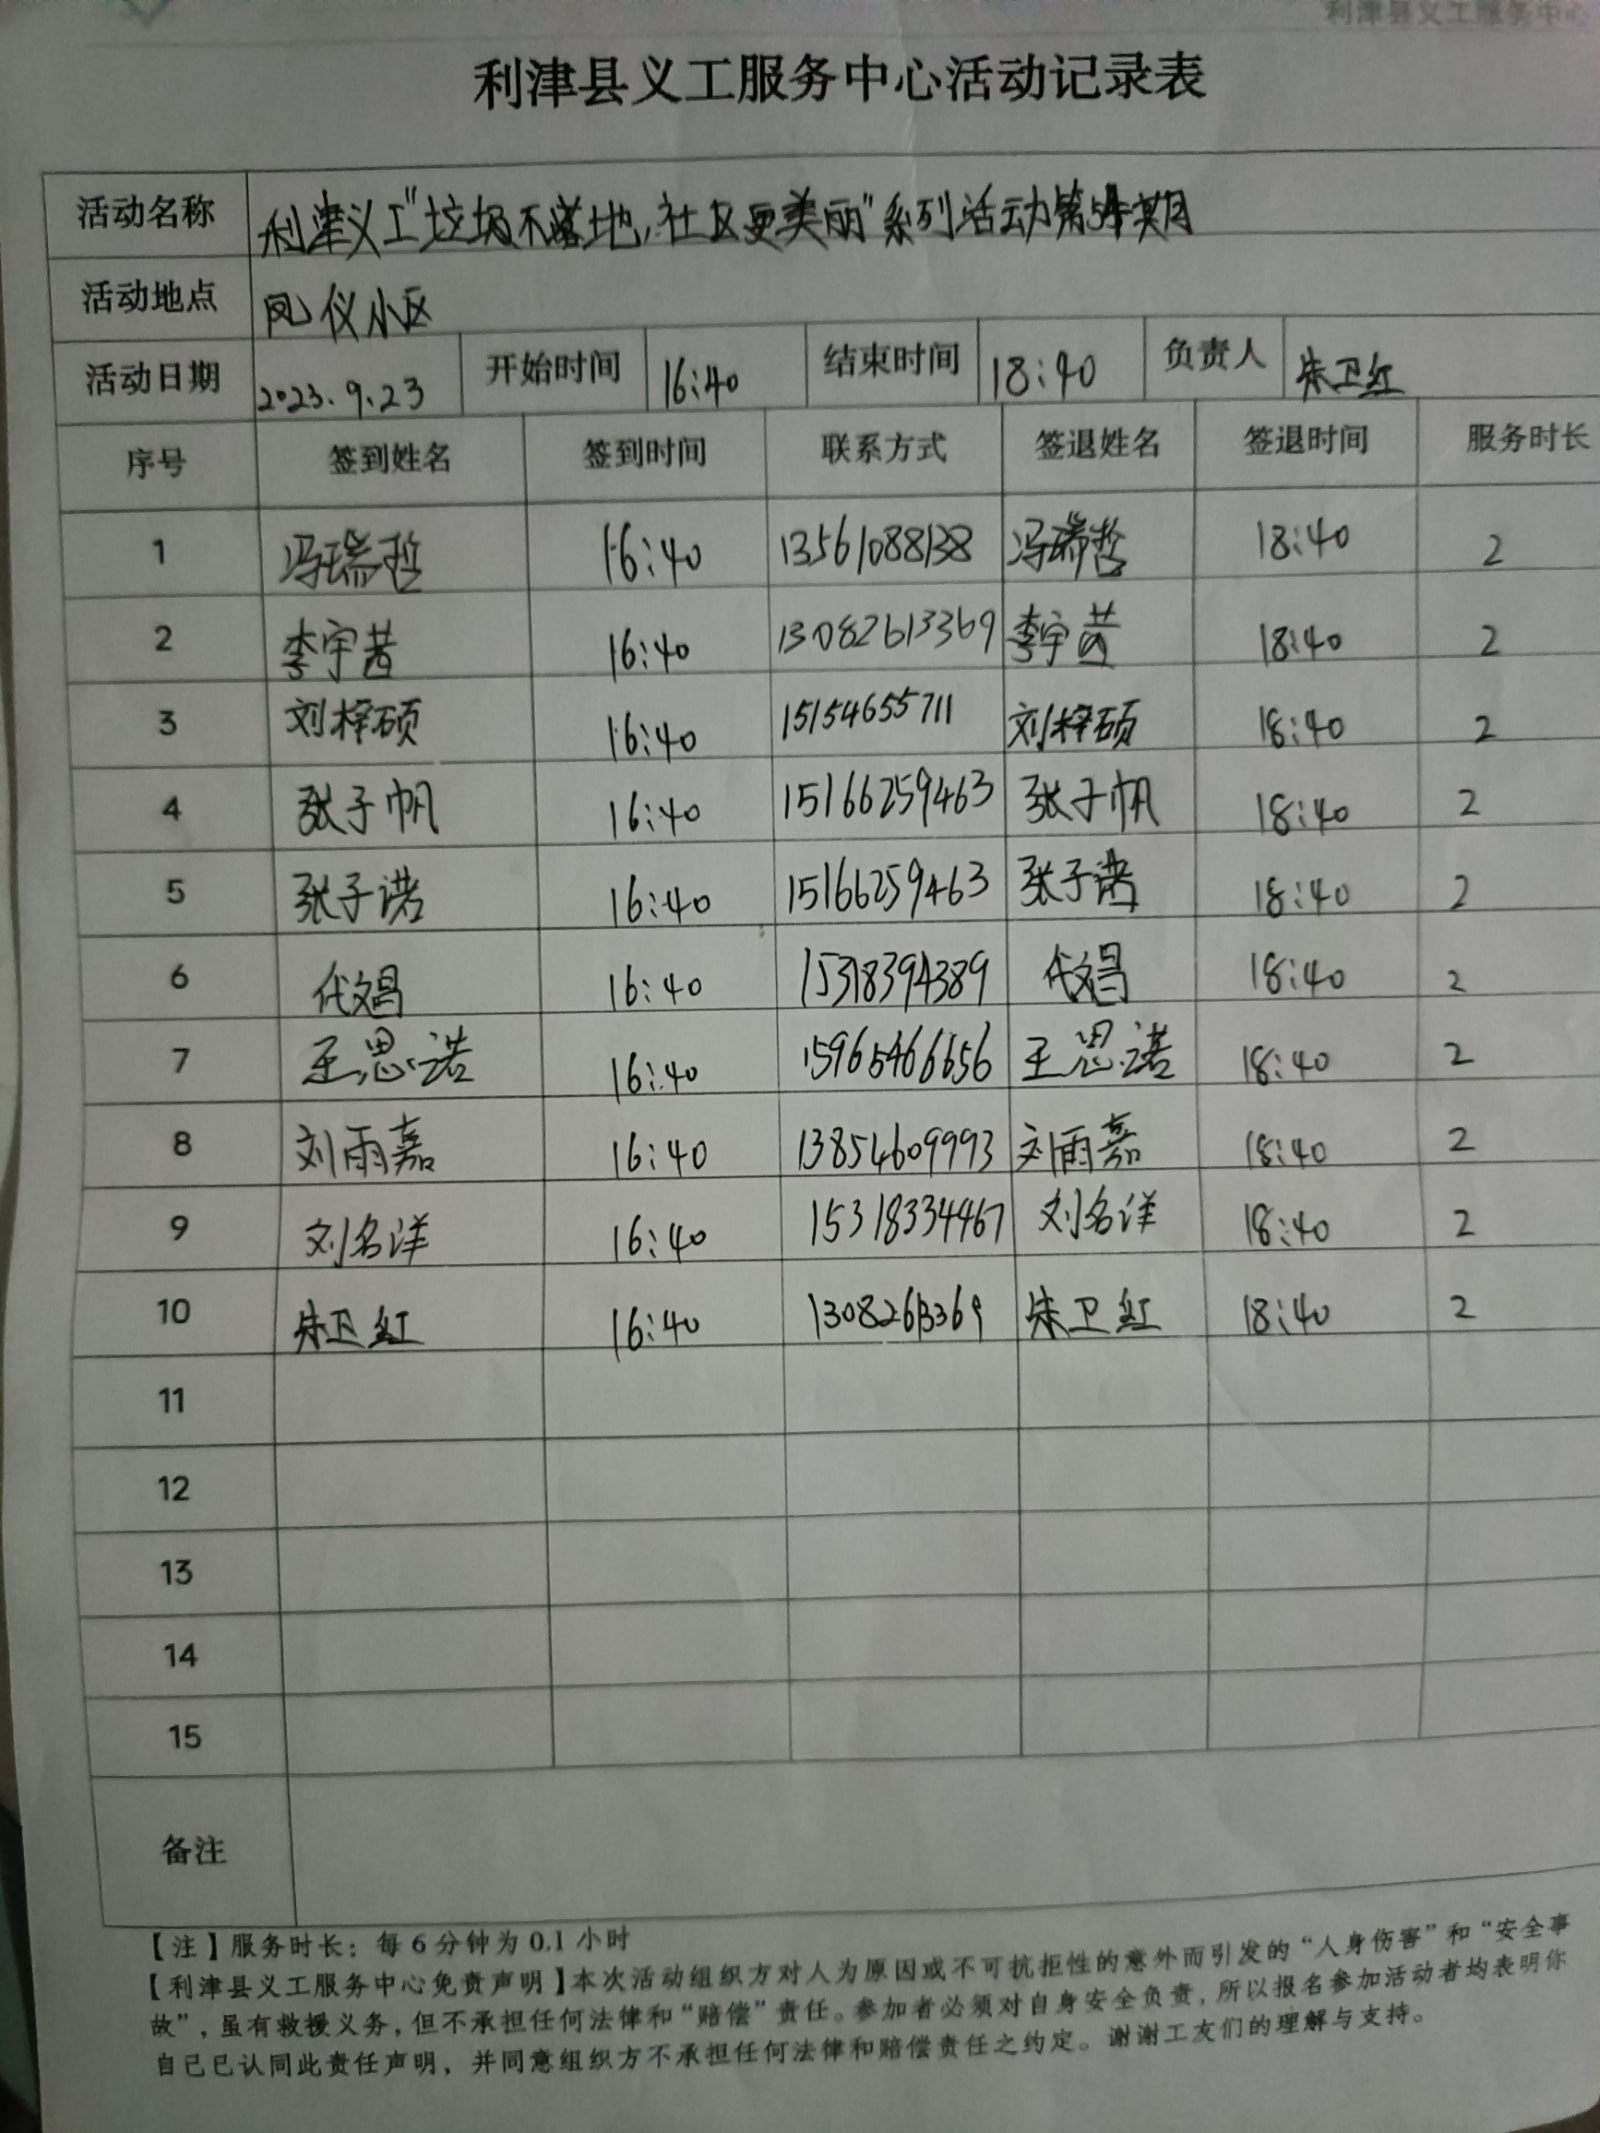 利津县义工服务中心
利津县义工服务中心活动记录表
活动名称 利津义工"垃圾不落地,社区更美丽"系列活动第 期
活动地点 凤仪小区
活动日期 2023.9.23 开始时间 16:40 结束时间 18:40 负责人 朱卫红
序号 签到姓名 签到时间 联系方式 签退姓名 签退时间 服务时长
1 冯瑞哲 16:40 13561088138 冯瑞哲 18:40 2
2 李宇茜 16:40 13082613369 李宇茜 18:40 2
3 刘梓硕 16:40 15154655711 刘梓硕 18:40 2
4 张子帆 16:40 15166259463 张子帆 18:40 2
5 张子诺 16:40 15166259463 张子诺 18:40 2
6 代文昌 16:40 15318394389 代文昌 18:40 2
7 王思诺 16:40 15965466656 王思诺 18:40 2
8 刘雨嘉 16:40 13854609993 刘雨嘉 18:40 2
9 刘名洋 16:40 15318334467 刘名洋 18:40 2
10 朱卫红 16:40 13082613369 朱卫红 18:40 2
11
12
13
14
15
备注
【注】服务时长：每 6 分钟为 0.1 小时
【利津县义工服务中心免责声明】本次活动组织方对人为原因或不可抗拒性的意外而引发的“人身伤害”和“安全事
故”，虽有救援义务，但不承担任何法律和“赔偿”责任。参加者必须对自身安全负责，所以报名参加活动者均表明你
自己已认同此责任声明，并同意组织方不承担任何法律和赔偿责任之约定。谢谢工友们的理解与支持。